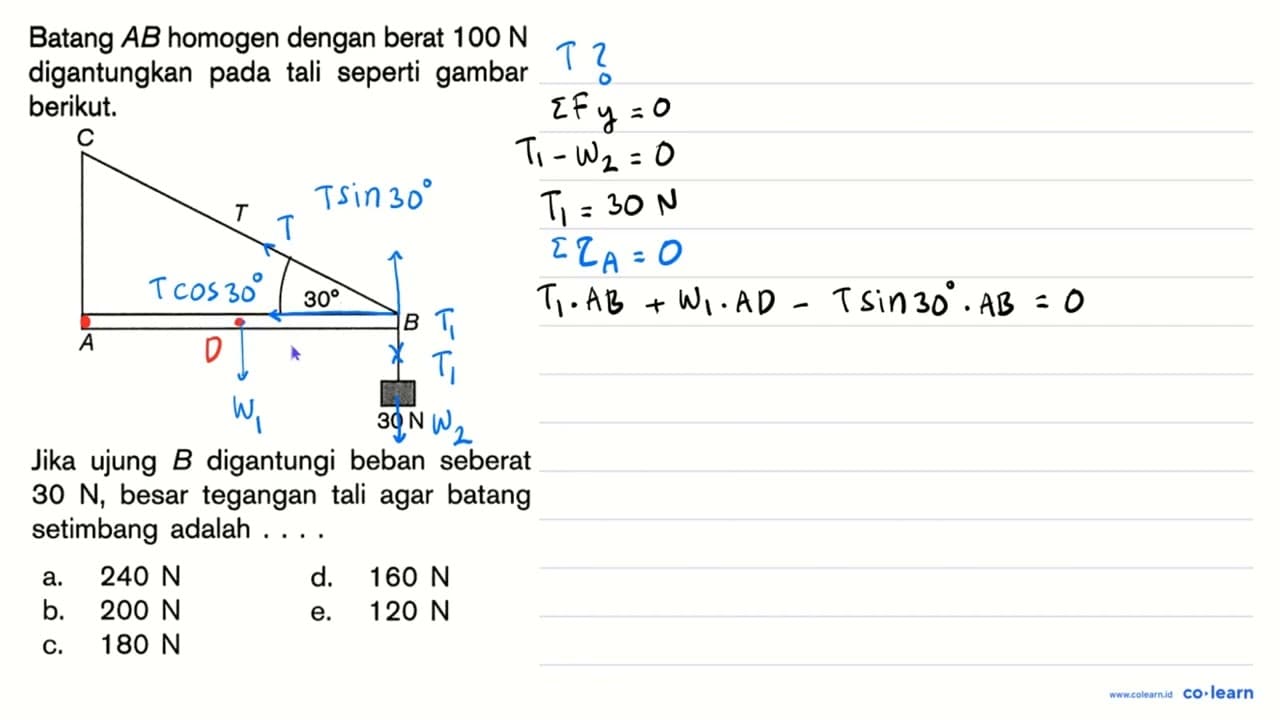 Batang AB homogen dengan berat 100 N
digantungkan pada tali seperti gambar
berikut.
C
T
T
T sin 30°
T cos 30°
30°
A
D
B
T₁
T₁
W₁
30 N
W₂
Jika ujung B digantungi beban seberat
30 N, besar tegangan tali agar batang
setimbang adalah . . . .
a. 240 N
b. 200 N
c. 180 N
d. 160 N
e. 120 N
T ?
ΣFy = 0
T₁ - W₂ = 0
T₁ = 30 N
Στ_A = 0
T₁ . AB + W₁ . AD - T sin 30° . AB = 0
www.colearn.id co·learn